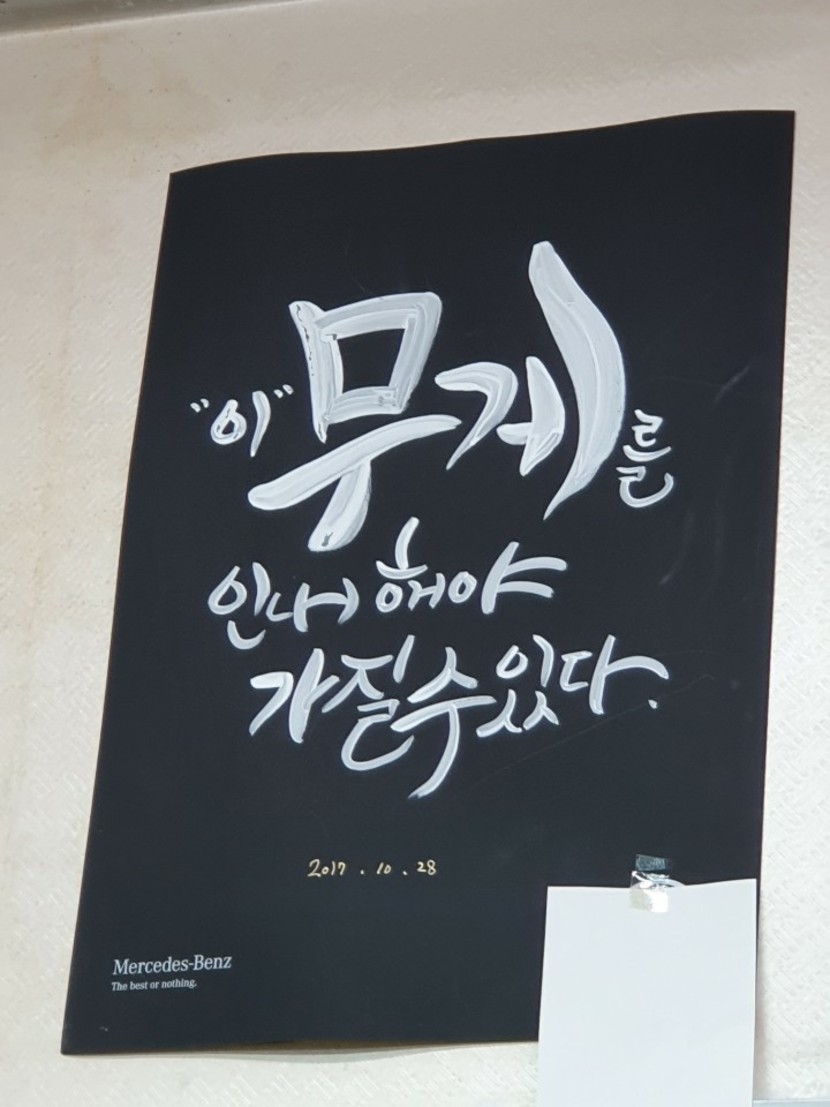 "이" 무게를
인내해야
가질수있다.
2017. 10. 28
Mercedes-Benz
The best or nothing.